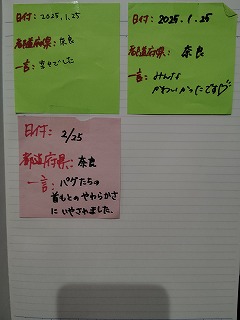 日付: 2025.1.25
都道府県: 奈良
一言: 幸せでした
日付: 2025.1.25
都道府県: 奈良
一言: みんな
かわいかったです♡
日付: 2/25
都道府県: 奈良
一言: パグたちの
首もとのやわらかさ
にいやされました。